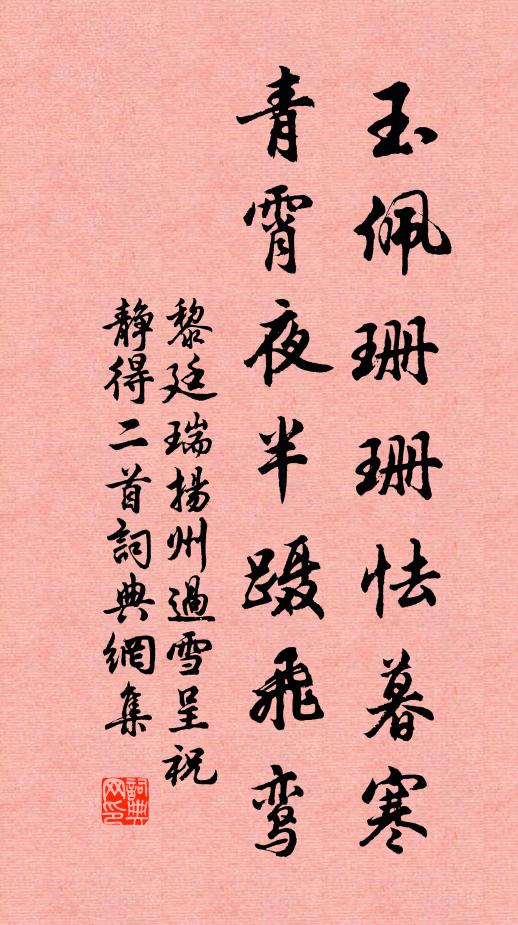 玉佩珊珊怯暮寒
青霄夜半蹑飛鸾
黎廷瑞揚州過雪呈祝
靜得二首詞典網集
詞典
网印